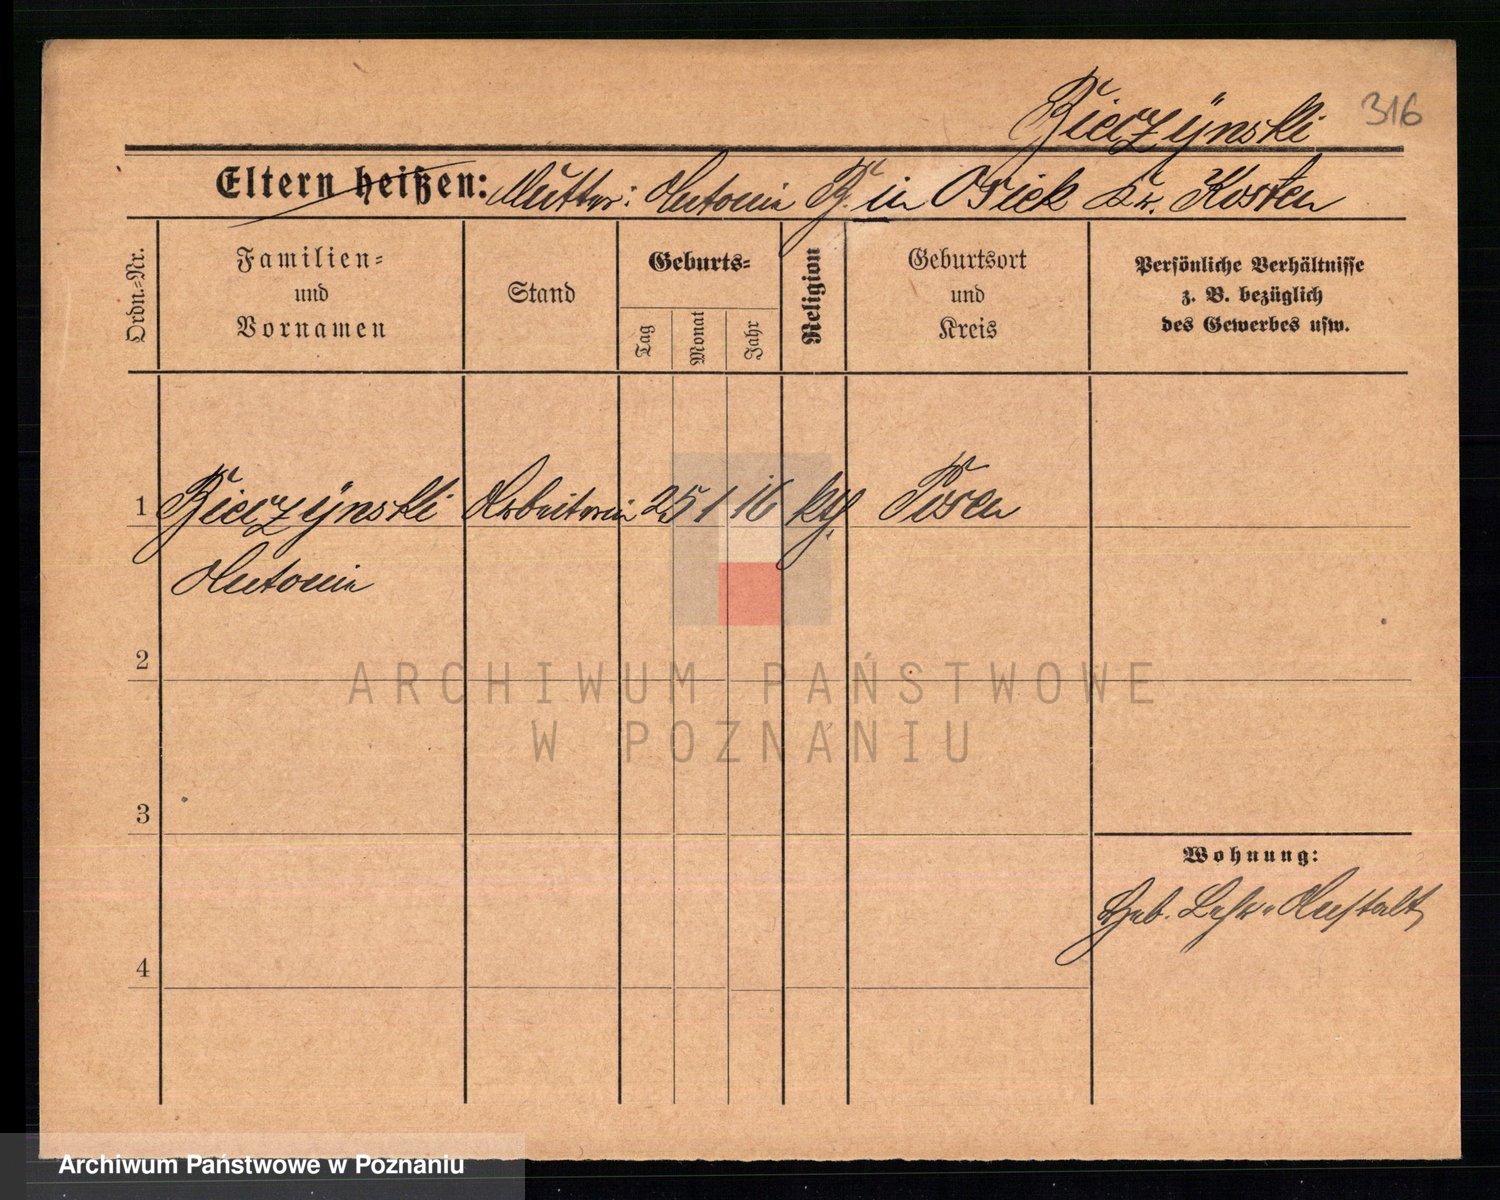 Bieczÿnski 316
Eltern heißen: Mutter: Antonie B. in Osiek Kr. Kosten
Ordn.=Nr.
Familien=
und
Vornamen
Stand
Geburts=
Tag
Monat
Jahr
Religion
Geburtsort
und
Kreis
Persönliche Verhältnisse
z. B. bezüglich
des Gewerbes usw.
1 Bieczÿnski Arbeiterin 25 1 16 kth Posen
Antonie
2
ARCHIWUM PAŃSTWOWE
W POZNANIU
3
Wohnung:
Heb. Lehr=Anstalt
4
Archiwum Państwowe w Poznaniu